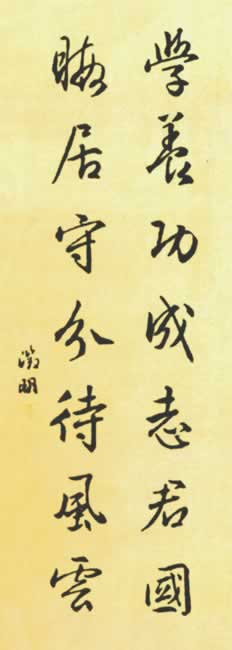 學養功成志君國
晦居守分待風雲
徵明